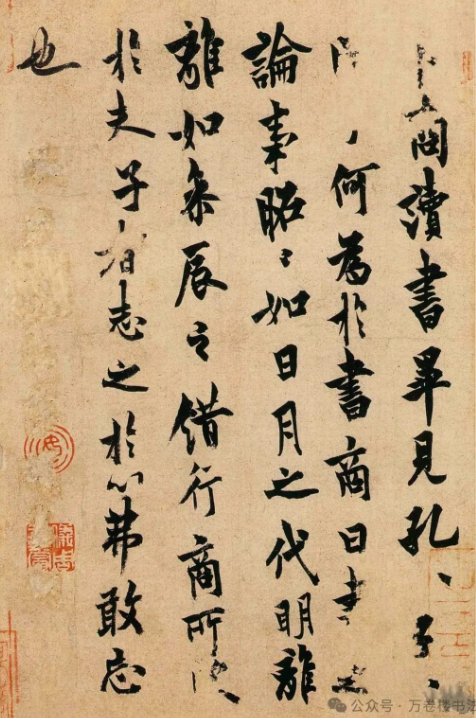 問讀書畢見孔〻子〻
何為於書商曰書之
論事昭〻如日月之代明離
離如參辰之錯行商所受
於夫子者志之於心弗敢忘
也
公众号 · 万卷楼书